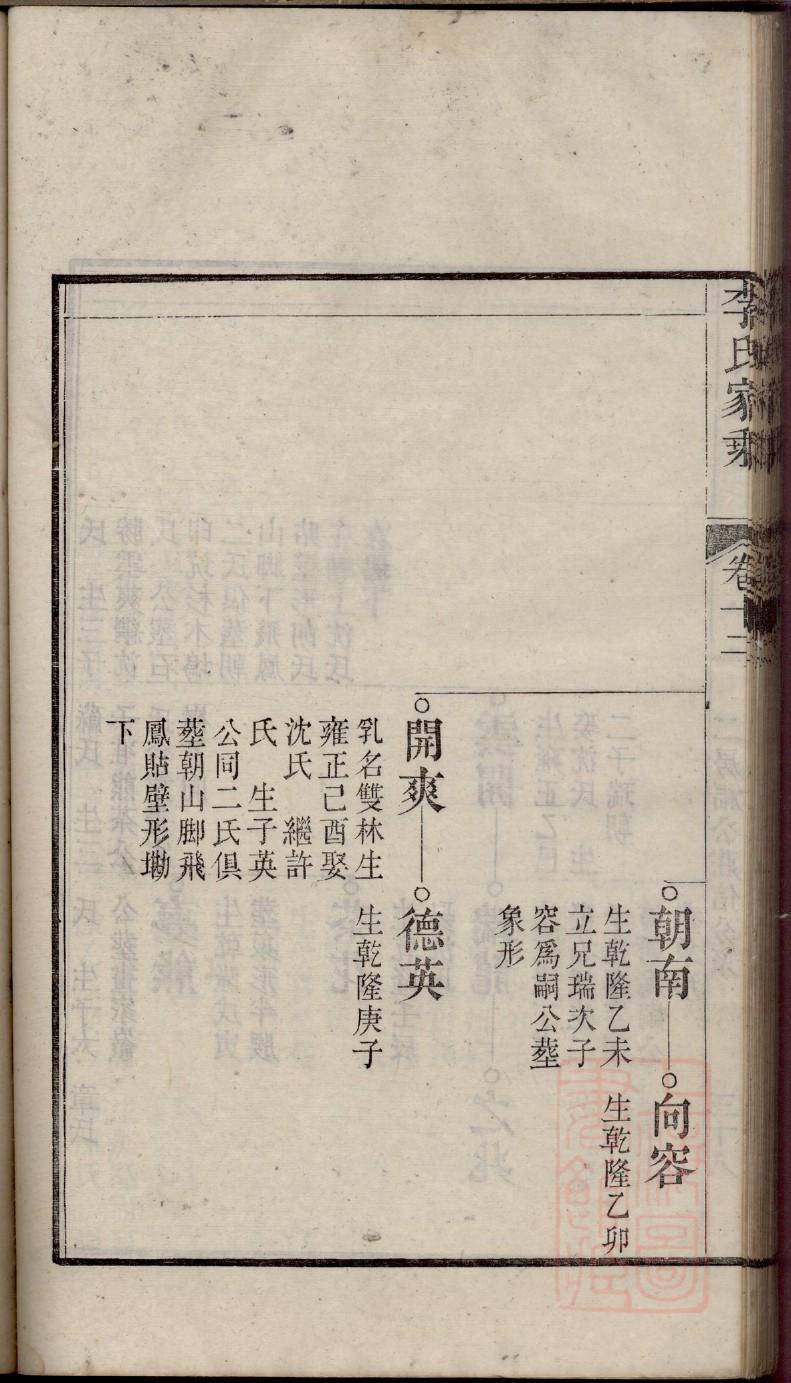 李氏家乘
卷十二
朝南
生乾隆乙未
立兄瑞次子
容爲嗣公塟
象形
向容
生乾隆乙卯
開爽
乳名雙林生
雍正己酉娶
沈氏 繼許
氏 生子英
公同二氏俱
塟朝山脚飛
鳳貼壁形墈
下
德英
生乾隆庚子